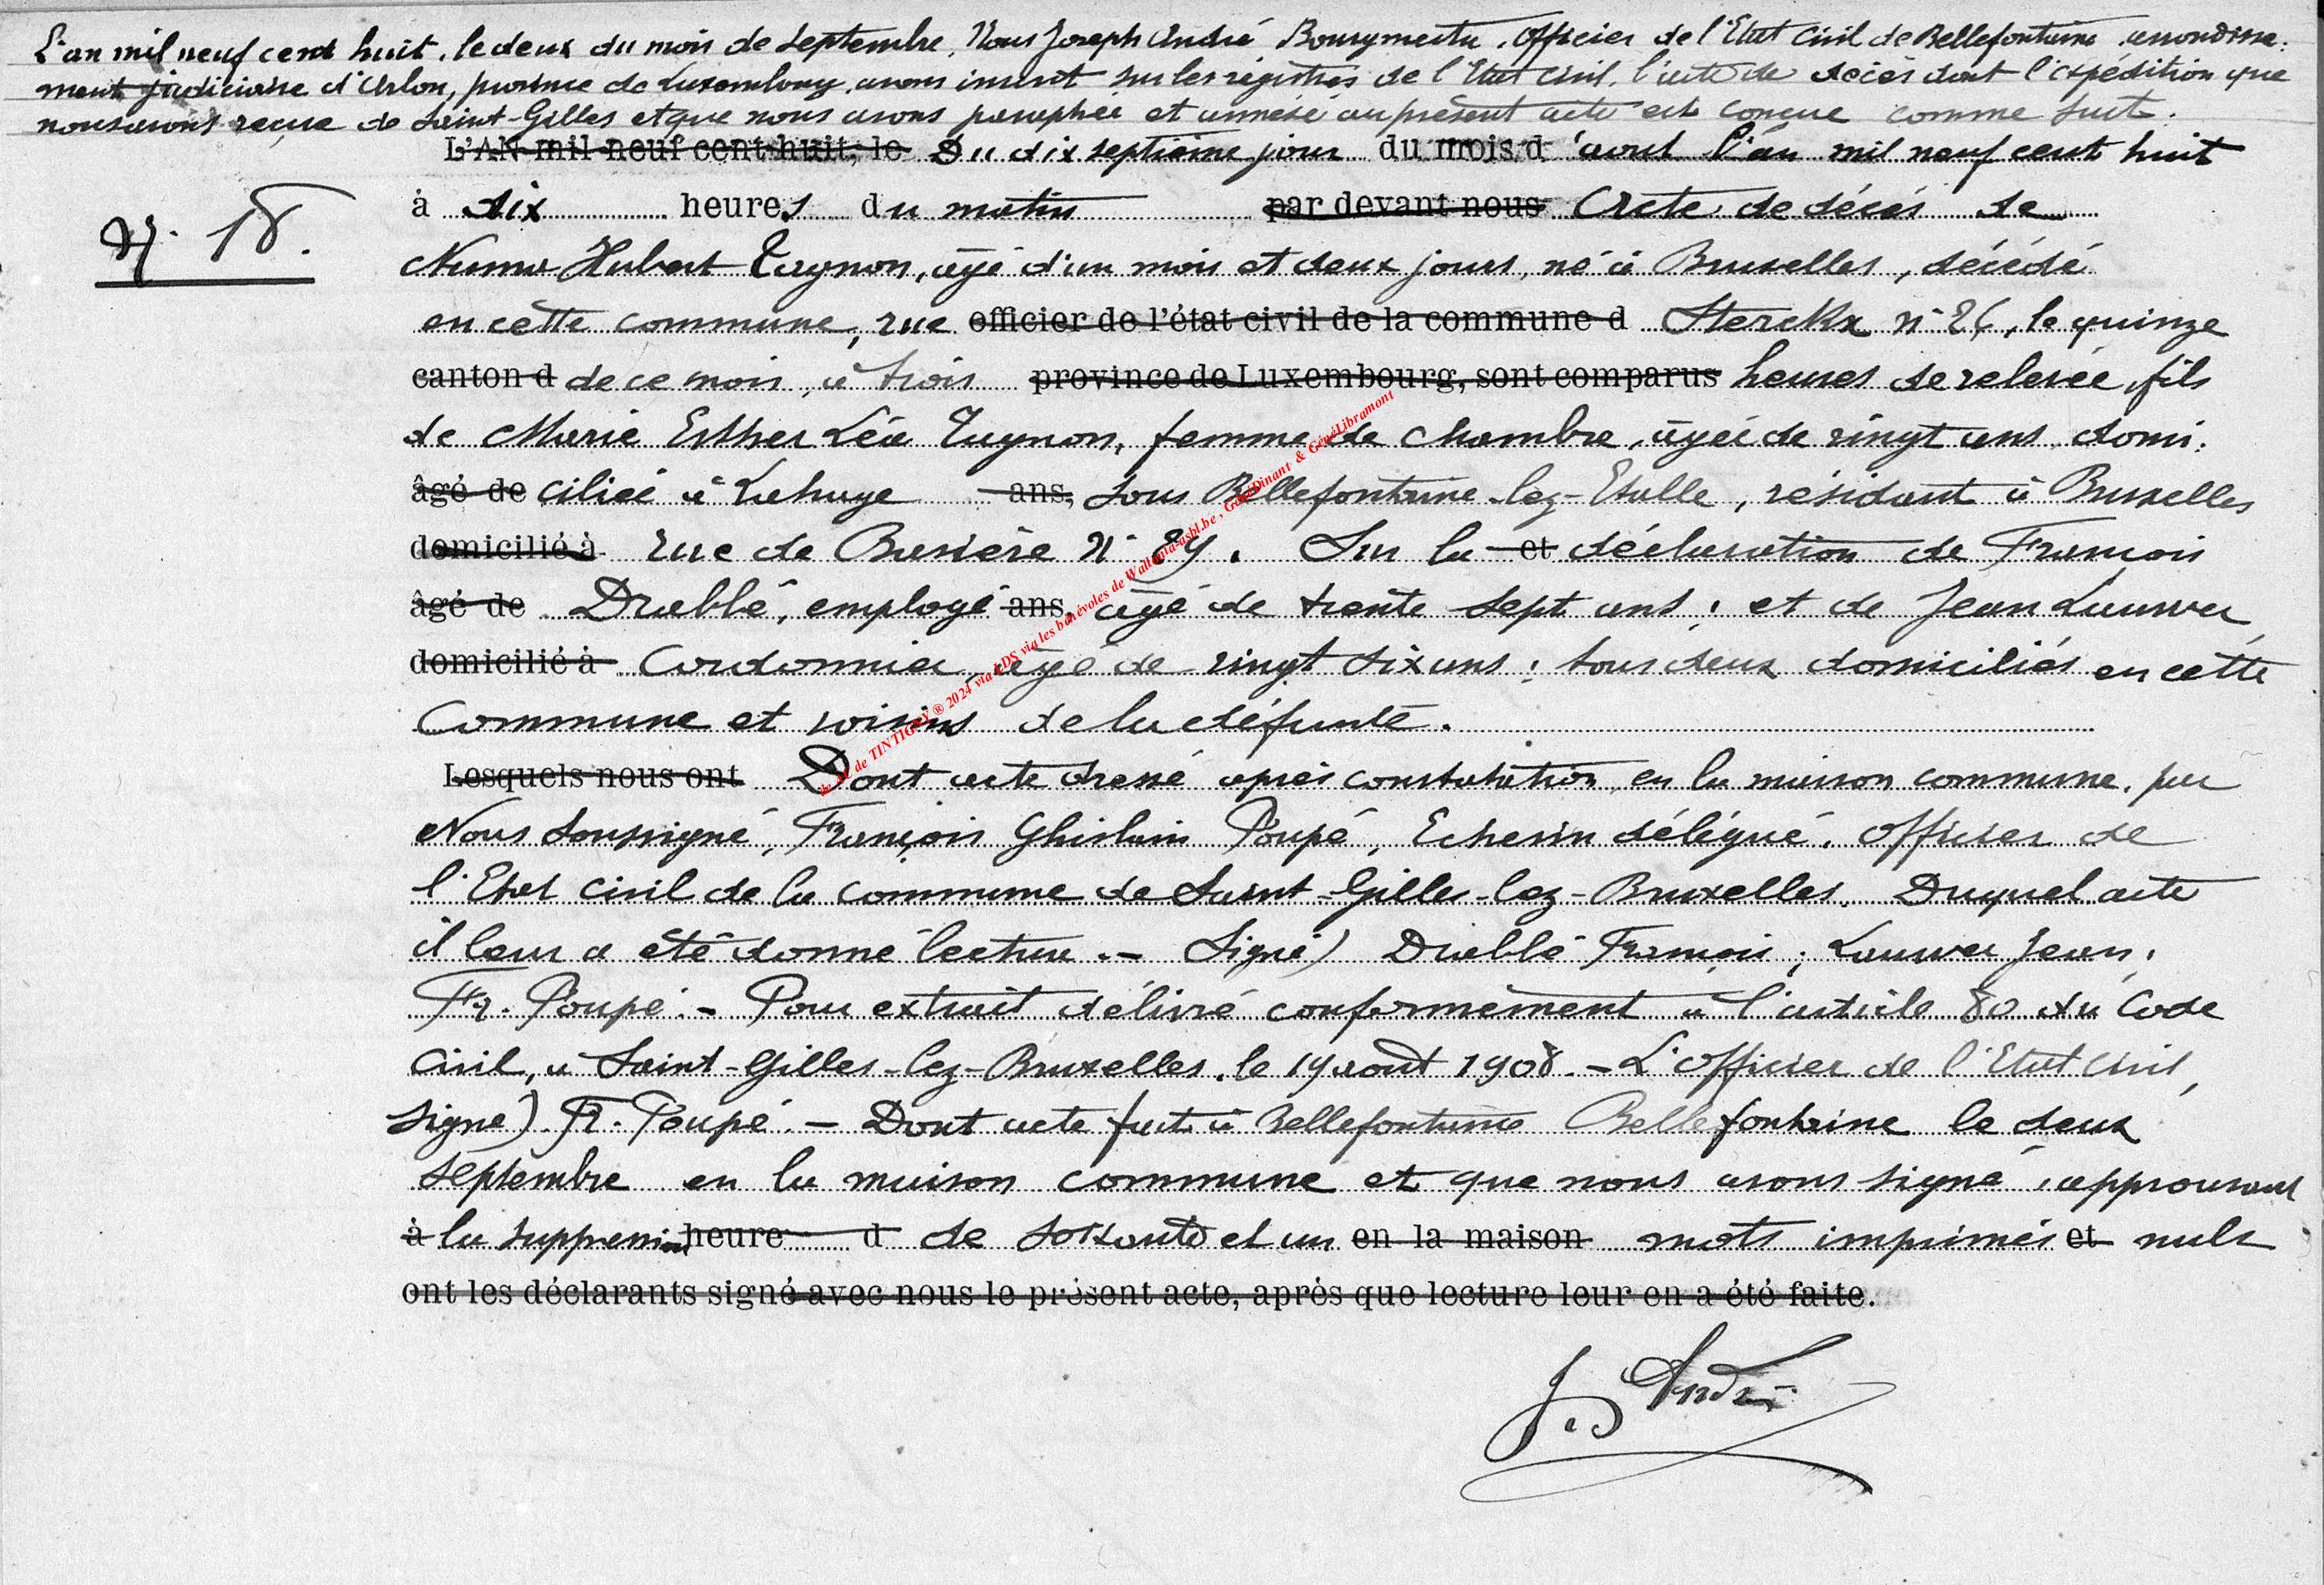 L'an mil neuf cent huit, le deux du mois de septembre, Nous Joseph André Bourgmestre, Officier de l'Etat Civil de Bellefontaine, arrondisse-
ment judiciaire d'Arlon, province de Luxembourg, avons inscrit sur les registres de l'Etat civil, l'acte de décès dont l'expédition que
nous avons reçue de Saint-Gilles et que nous avons paraphée et annexé au présent acte est conçue comme suit.
L'AN mil neuf cent huit, le Du dix septième jour du mois d'août l'an mil neuf cent huit
N° 18. à dix heures du matin par devant nous Acte de décès de
Numa Hubert Tugnon, âgé d'un mois et deux jours, né à Bruxelles, décédé
en cette commune, rue officier de l'état civil de la commune d Sterckx n° 26, le quinze
canton d de ce mois, à trois province de Luxembourg, sont comparus heures de relevée, fils
de Marie Esther Léa Tugnon, femme de chambre, âgée de vingt ans domi-
âgé de ciliée à Lahage ans, sous Bellefontaine-lez-Etalle, résidant à Bruxelles
domicilié à rue de N° 29. Sur la et déclaration de François
âgé de Drablé, employé ans, âgé de trente sept ans; et de Jean Lauwer
domicilié à Cordonnier, âgé de vingt six ans; tous deux domiciliés en cette
Commune et voisins de la défunte.
Lesquels nous ont Dont acte dressé après constatation en la maison commune, par
Nous soussigné, François Ghislain Poupé, Echevin délégué, Officier de
l'Etat civil de la commune de Saint-Gilles-lez-Bruxelles. Duquel acte
il leur a été donné lecture.- Signé) Drablé François; Lauwer Jean;
Fr. Poupé.- Pour extrait délivré conformément à l'article 80 du Code
Civil, à Saint-Gilles-lez-Bruxelles, le 19 août 1908.- L'Officier de l'Etat Civil,
Signé) Fr. Poupé.- Dont acte fait à Bellefontaine Bellefontaine le deux
septembre en la maison commune et que nous avons signé, approuvant
à la suppression heure d de soixante et un en la maison mots imprimés et nuls
ont les déclarants signé avec nous le présent acte, après que lecture leur en a été faite.
J. André
de TINTIGNY ® 2024 via LDS via les bénévoles de Wallonia asbl.be, GénéDinant & GénéLibramont